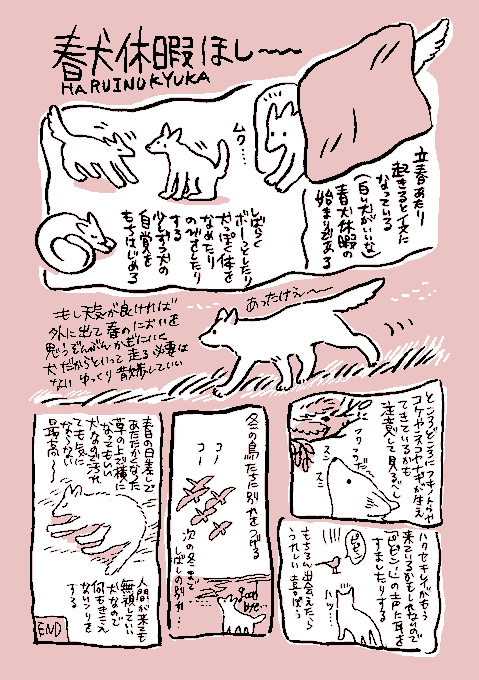 春犬休暇ほし〜〜
HARUINUKYUKA
立春あたり
起きると犬に
なっている
(白い犬がいいな)
春犬休暇の
始まりである
ムク…
しばらく
ボーっとしたり
犬っぽく体を
なめたり
のびをしたり
する
少しずつ犬の
自覚を
もちはじめる
あったけえ〜
もし天気が良ければ
外に出て春のにおいを
思うぞんぶんかぎにいく
犬だからといって走る必要は
ない ゆっくり散歩していい
ところどころにフキノトウや
コケやネコヤナギが生え
てきているかも
注意して見るべし
フワフワだ
スン
スン
ハクセキレイがもう
来ているかもしれないので
「ピピン」の声に耳を
すましたりする
ピピン
ハッ…
もちろん出会えたら
うれしい 喜ぼう
冬の鳥たちに別れをつげる
コー
コー
次の冬まで
しばしの別れ…
good
bye…
春の日差しで
あたたかくなった
草の上で横に
なってもいい
犬なので汚れ
ても気に
ならない
最高〜
人間が来ても
無視していい
犬なので
何もきこえ
ないフリを
する
END